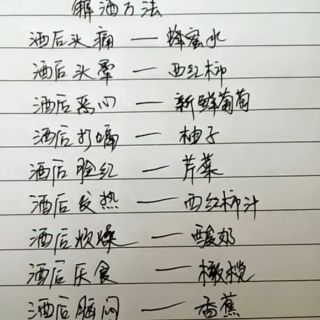 解酒方法
酒后头痛 — 蜂蜜水
酒后头晕 — 西红柿
酒后恶心 — 新鲜葡萄
酒后打嗝 — 柚子
酒后脸红 — 芹菜
酒后发热 — 西红柿汁
酒后烦燥 — 酸奶
酒后厌食 — 橄榄
酒后胸闷 — 香蕉